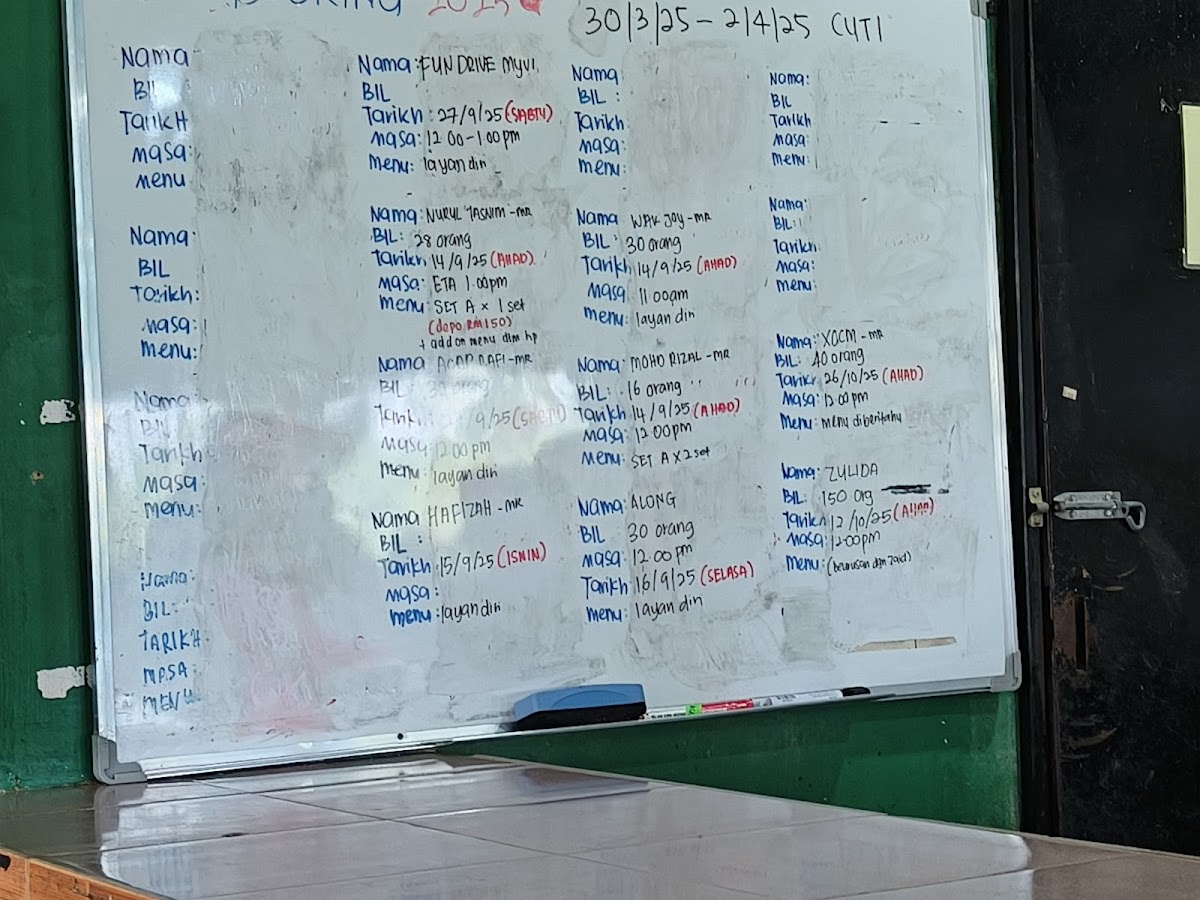 BOOKING 2025
30/3/25 - 2/4/25 CUTI
Nama:
BIL
TarikH
Masa:
menu
Nama:
BIL
Tarikh:
masa:
menu:
Nama:
BIL
Tarikh
masa:
menu:
Nama:
BIL:
TARIKH
MASA:
MENU
Nama: FUN DRIVE MYVI
BIL
Tarikh: 27/9/25 (SABTU)
masa: 12 00-1.00pm
menu: layan diri
Nama: NURUL TASNIM -MR
BIL: 28 orang
Tarikh 14/9/25 (AHAD)
masa: ETA 1.00pm
menu: SET A x 1 set
(depo RM150)
+ add on menu dlm hp
Nama RAFI -MR
BIL: 30 orang
Tarikh /9/25 (SABTU)
masa 12 00pm
menu: layan diri
Nama HAFIZAH -MR
BIL :
Tarikh: 15/9/25 (ISNIN)
masa:
menu: layan diri
Nama:
BIL :
Tarikh:
masa:
menu:
Nama WAK JOY -MR
BIL: 30 orang
Tarikh 14/9/25 (AHAD)
masa 11 00am
menu: layan diri
Nama: MOHD RIZAL -MR
BIL: 16 orang
Tarikh 14/9/25 (AHAD)
masa: 12 00pm
Menu: SET A X 2 set
Nama: ALONG
BIL 30 orang
masa: 12.00pm
Tarikh 16/9/25 (SELASA)
menu: layan diri
Nama:
BIL
Tarikh
masa:
menu:
Nama:
BIL:
Tarikh:
masa:
menu:
Nama: XOCM -MR
BIL: 40 orang
Tarikh 26/10/25 (AHAD)
Masa: 12 00pm
Menu: menu diberitahu
Nama: ZULIDA
BIL: 150 org
Tarikh 12/10/25 (AHAD)
masa: 12 00pm
menu: (berurusan dgn Zaid)